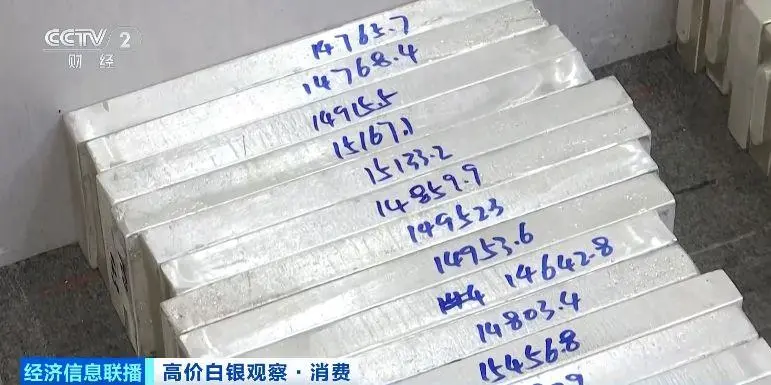 CCTV 2
财经
14763.7
14768.4
14915.5
15167.1
15133.2
14859.9
14952.3
14953.6
14642.8
14803.4
15456.8
经济信息联播 高价白银观察·消费